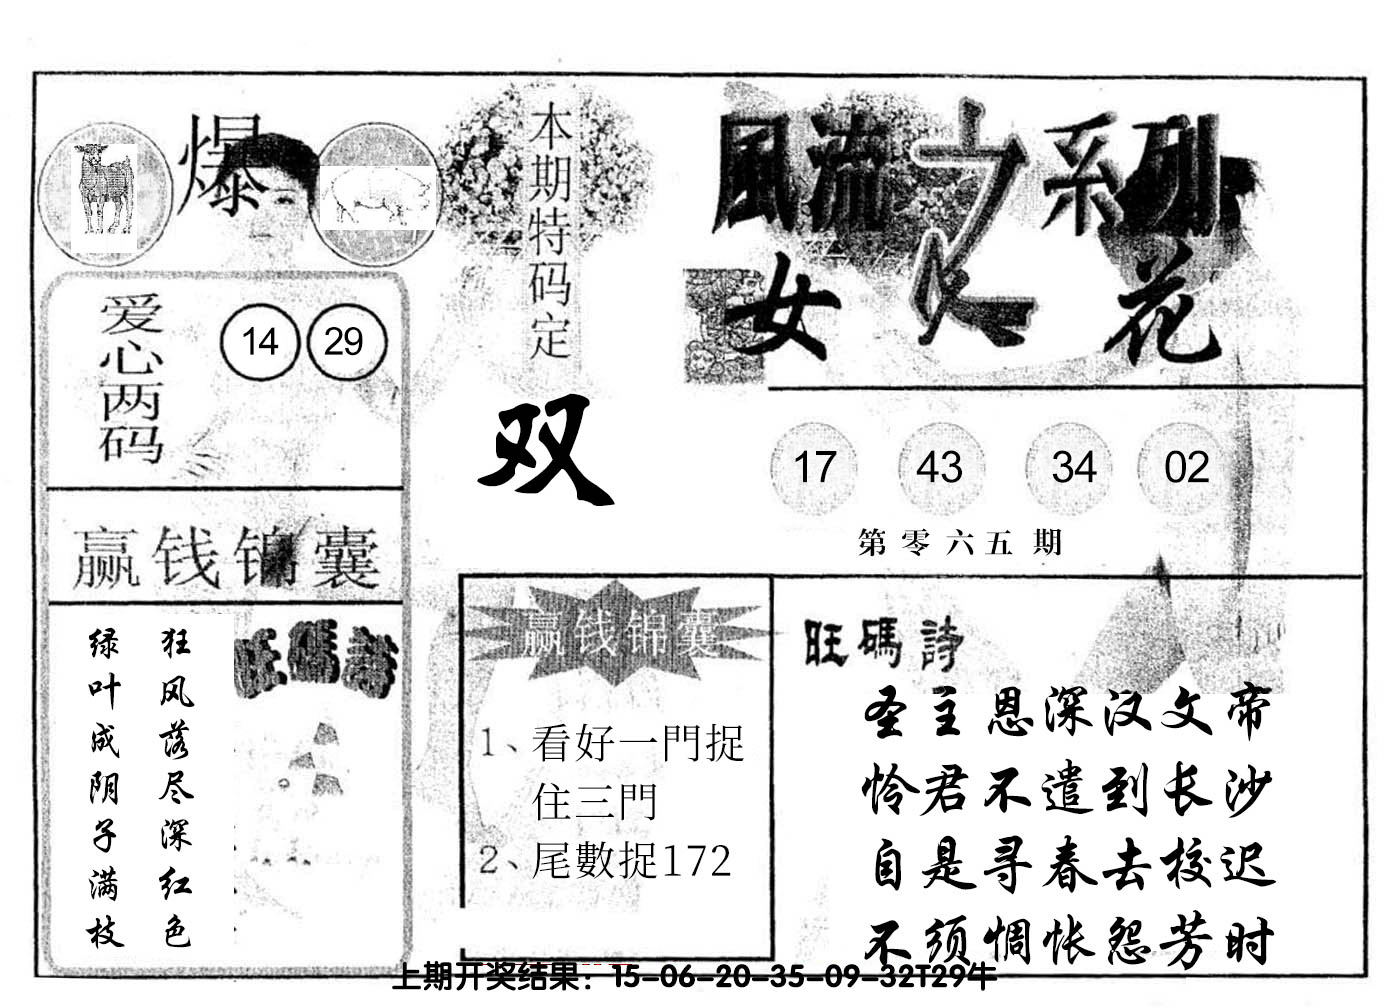 爆
本期特码定
双
風流之系列
女人花
爱心两码
14 29
17 43 34 02
第零六五期
赢钱锦囊
旺碼詩
狂风落尽深红色
绿叶成阴子满枝
赢钱锦囊
1、看好一門捉
住三門
2、尾數捉172
旺碼詩
圣主恩深汉文帝
怜君不遣到长沙
自是寻春去校迟
不须惆怅怨芳时
上期开奖结果：15-06-20-35-09-32T29牛